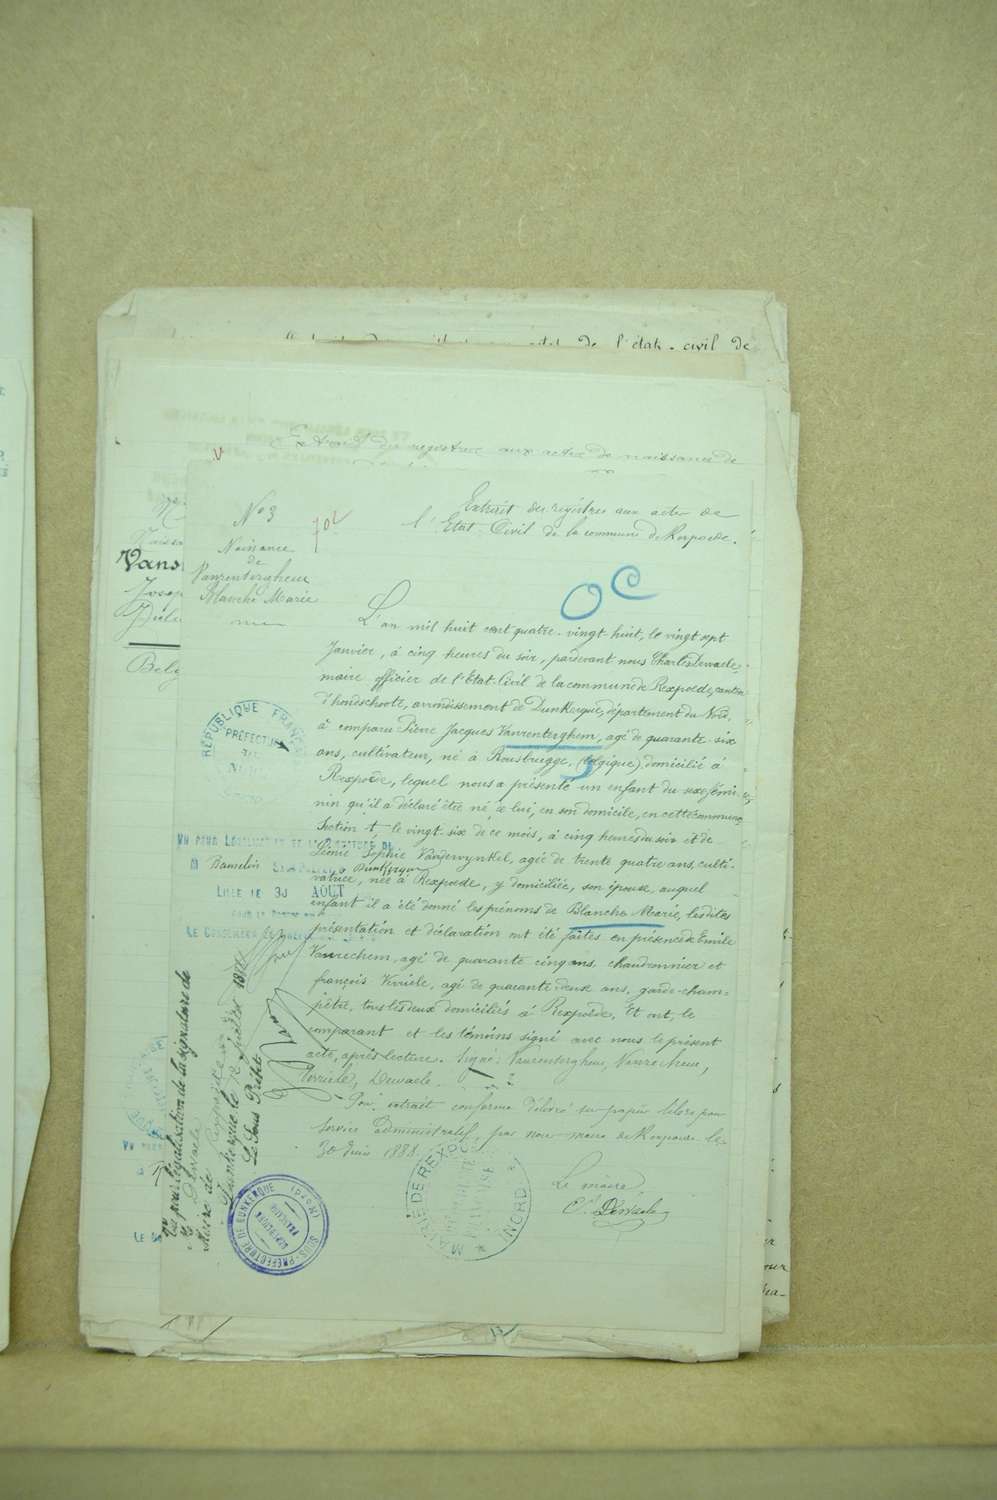 de l'état-civil de
Extrait du registre aux actes de naissance de
Vans
Joseph
Belg
No 3
Naissance
de
Vanrenterghem
Blanche Marie
Extrait des registres aux actes de
l'Etat Civil de la commune de Rexpoëde.
OC
L'an mil huit cent quatre-vingt huit, le vingt sept
Janvier, à cinq heures du soir, pardevant nous Charles Dewaele,
maire officier de l'Etat-Civil de la commune de Rexpoëde, canton
d'hondschoote, arrondissement de Dunkerque, département du Nord,
à comparu Pierre Jacques Vanrenterghem, agé de quarante-six
ans, cultivateur, né à Rousbrugge, (belgique) domicilié à
Rexpoëde, lequel nous a présenté un enfant du sexe fémi-
nin qu'il a déclaré être né de lui, en son domicile, en cette commune,
Section t, le vingt-six de ce mois, à cinq heures du soir et de
Léonie Sophie Vanderwynkel, agée de trente quatre ans, culti-
vatrice, née à Rexpoëde, y domiciliée, son épouse, auquel
enfant il a été donné les prénoms de Blanche Marie, lesdites
présentation et déclaration ont été faites en présence de Emile
Vanrechem, agé de quarante cinq ans, chaudronnier et
françois Verriele, agé de quarante-deux ans, garde-cham-
pêtre, tous les deux domiciliés à Rexpoëde. Et ont, le
comparant et les témoins signé avec nous le présent
acte, après lecture. Signé: Vanrenterghem, Vanrechem,
Verriele, Dewaele.
Pour extrait conforme délivré sur papier libre pour
service administratif, par nous maire de Rexpoëde le
30 Juin 1888.
Le maire
Ch. Dewaele
RÉPUBLIQUE FRANÇAISE
PRÉFECTURE
DU
NORD
VU POUR LÉGALISATION DE LA SIGNATURE DE
M Bamelin SOUS-PRÉFET à Dunkerque
LILLE LE 30 AOUT
LE CONSEILLER DE PRÉFECTURE
Vu pour légalisation de la signature de
M. Dewaele
Maire de Rexpoëde
Dunkerque le 12 juillet 1888
Le Sous Préfet
SOUS-PRÉFECTURE DE DUNKERQUE (NORD)
RÉPUBLIQUE FRANÇAISE
MAIRIE DE REXPOEDE (NORD)